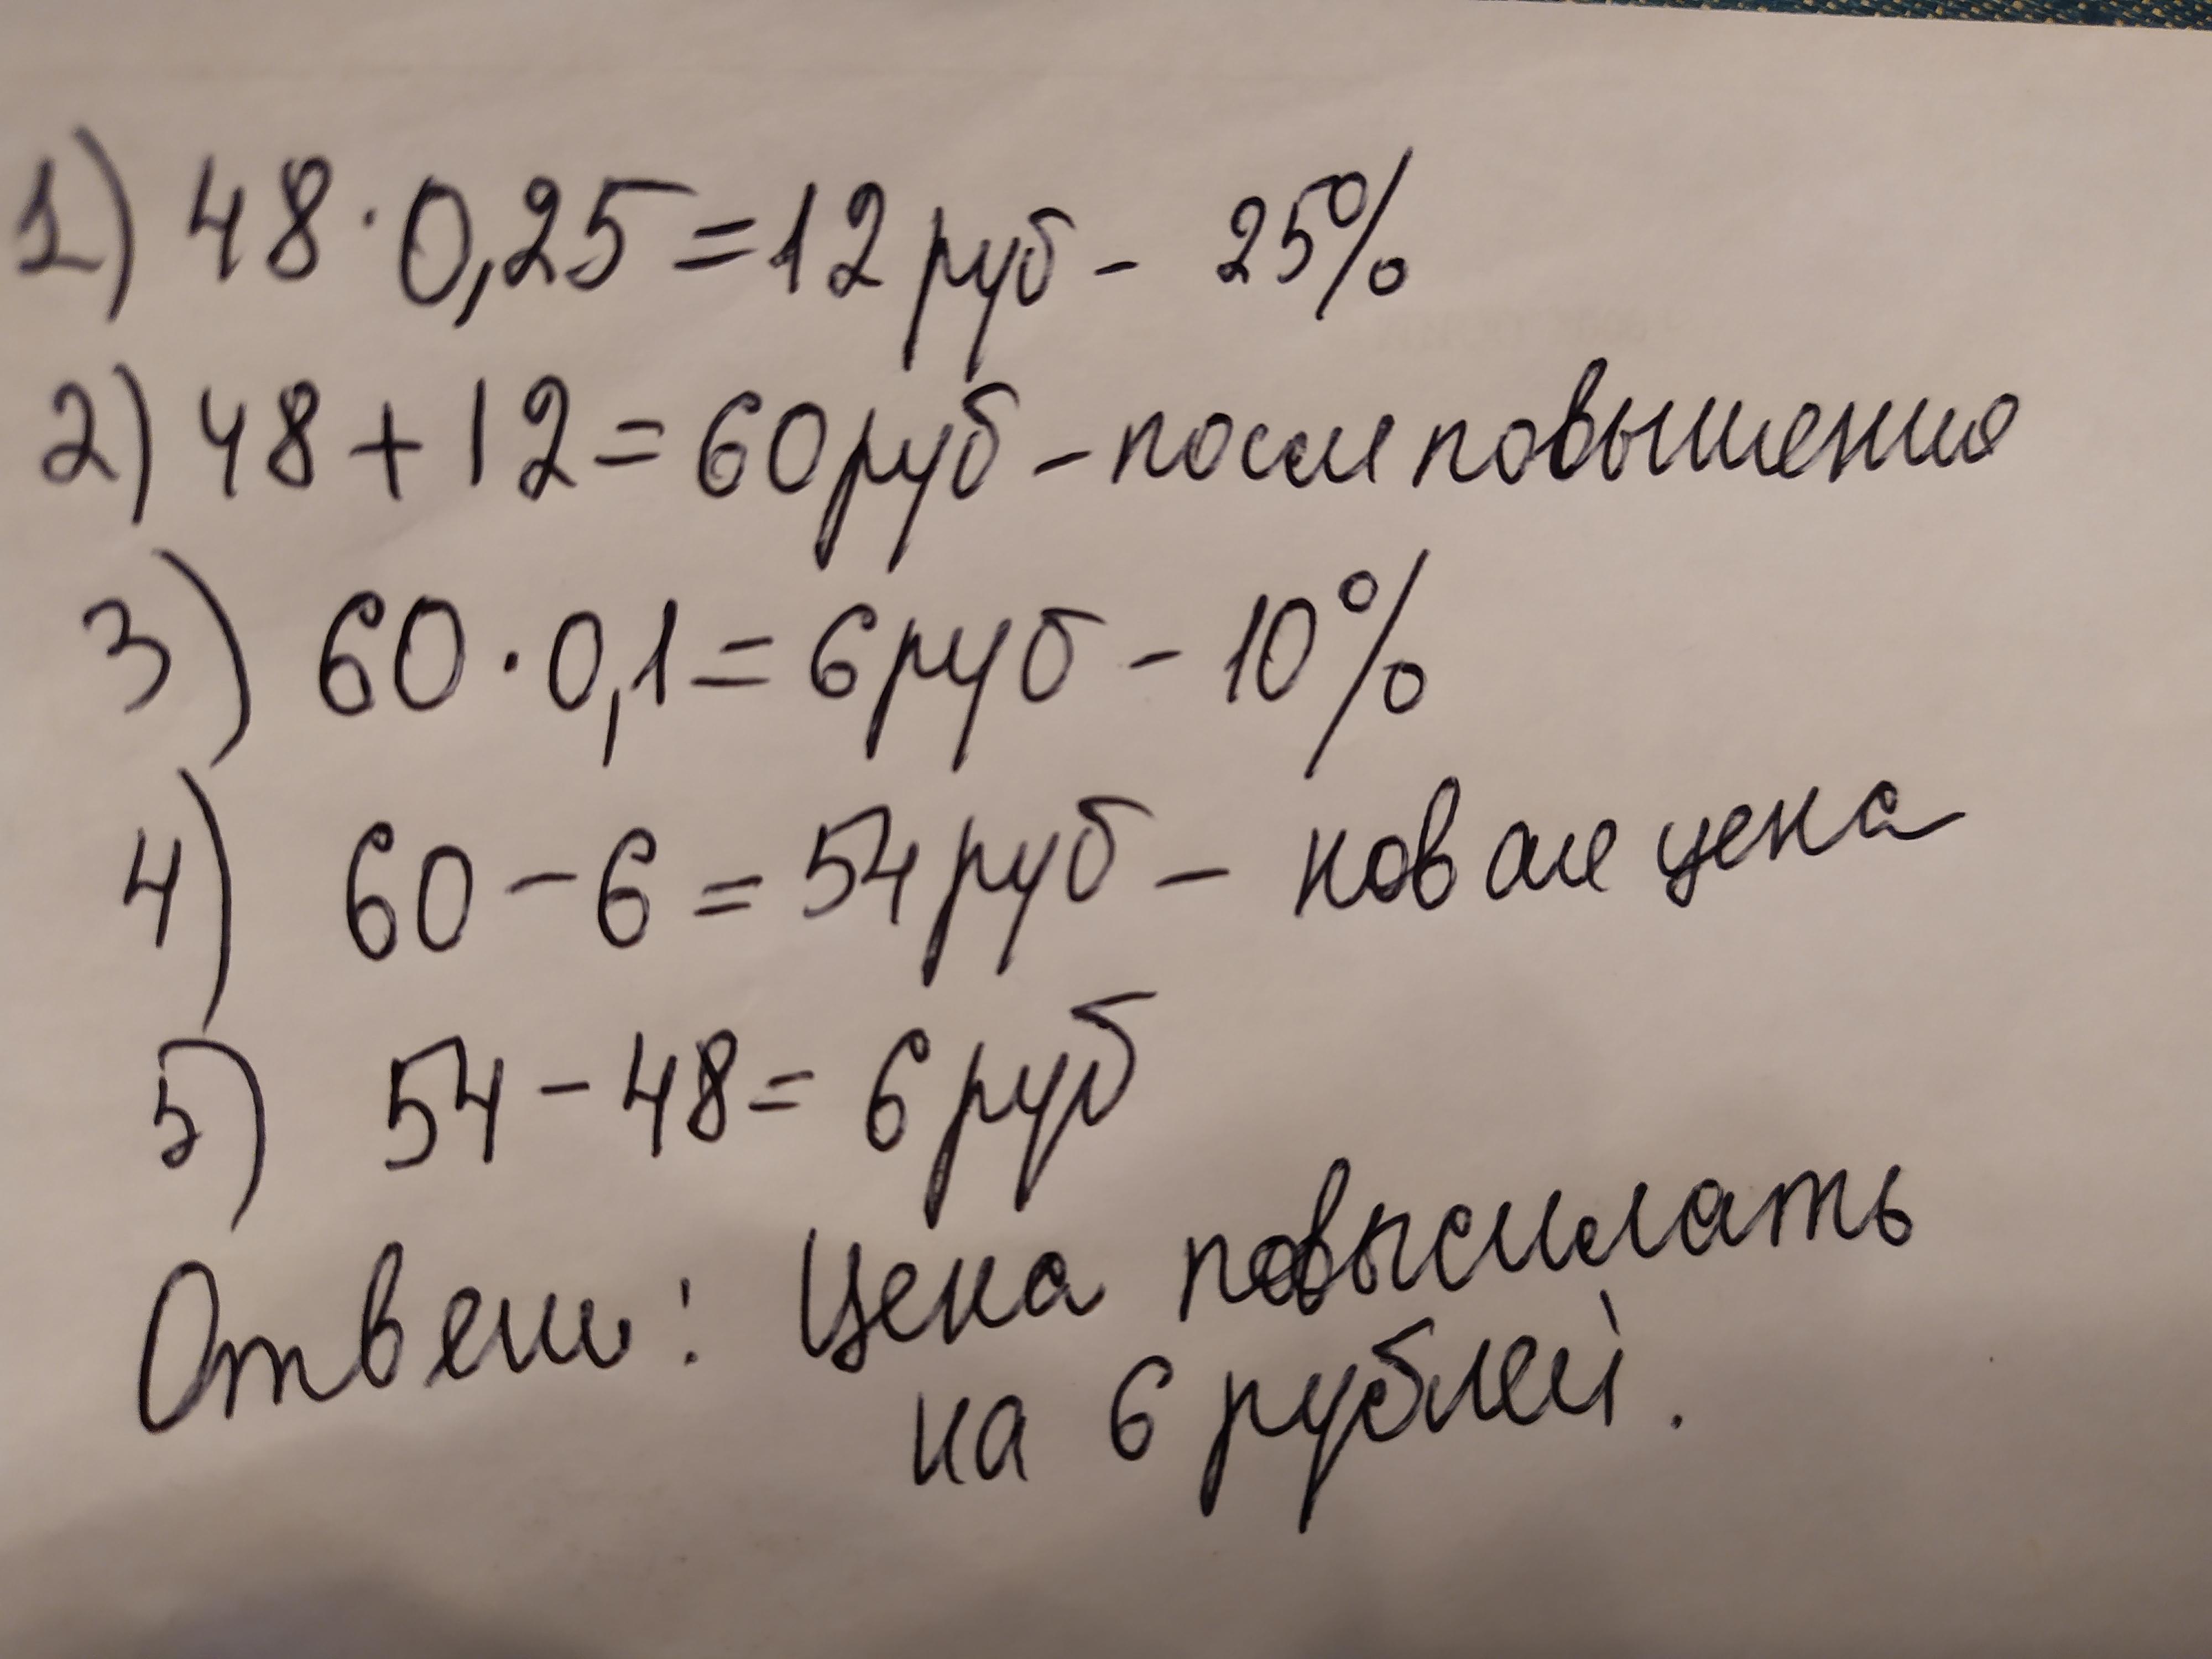 1) 48 · 0,25 = 12 руб - 25%
2) 48 + 12 = 60 руб - после повышения
3) 60 · 0,1 = 6 руб - 10%
4) 60 - 6 = 54 руб - новая цена
5) 54 - 48 = 6 руб
Ответ: Цена повысилать
на 6 рублей.